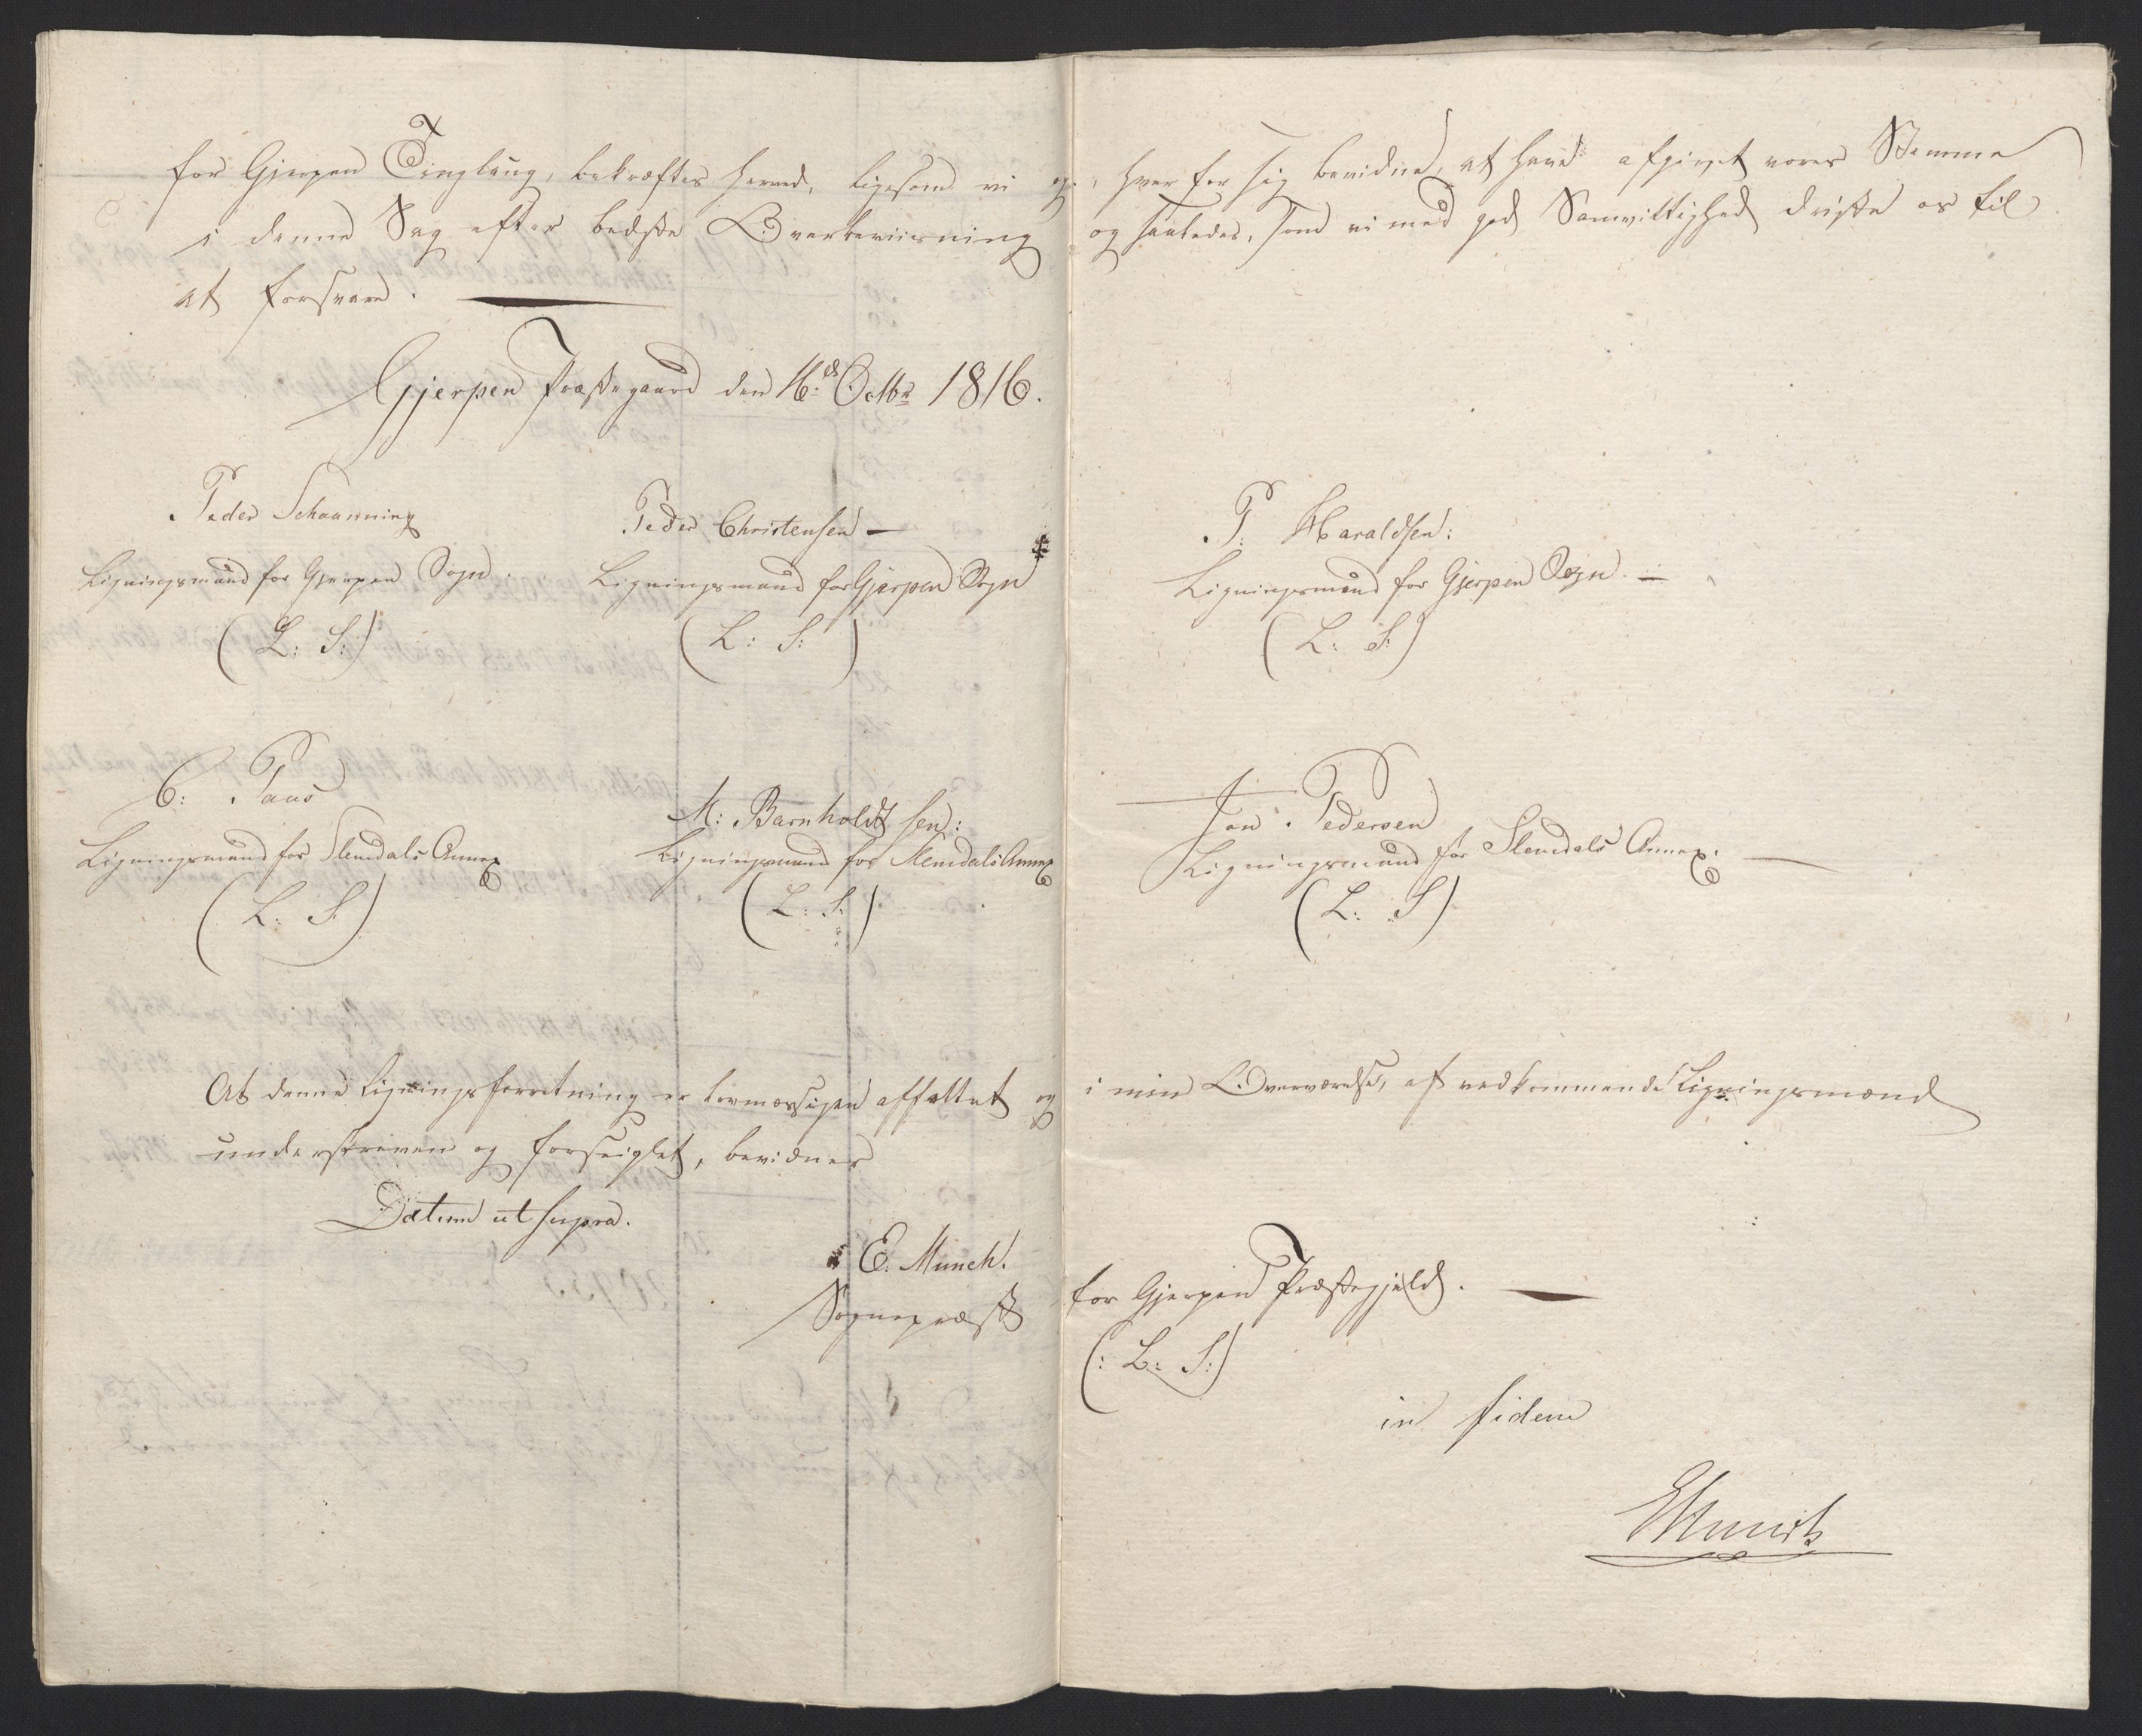 for Gjerpen Tinglaug, bekræftes herved, ligesom vi og, hver for sig bevidne, at have afgivet vores Stemme
i denne Sag efter bedste Overbeviisning og saaledes, som vi med god Samvittighed driste os til
at forsvare.
Gjerpen Præstegaard den 16de Octbr 1816.
Peder Schaanning Peder Christensen — P: Haraldsen:
Ligningsmand for Gjerpen Sogn. Ligningsmand for Gjerpen Sogn Ligningsmand for Gjerpen Sogn. —
(L: S:) (L: S:) (L: S:)
C: Paus M: Barnholdtsen: Jon Pedersen
Ligningsmand for Slemdals Annex Ligningsmand for Slemdals Annex Ligningsmand for Slemdals Annex. —
(L: S:) (L: S:) (L: S)
At denne Ligningsforretning er lovmæssigen affattet og i min Overværelse, af vedkommende Ligningsmænd
underskreven og forseiglet, bevidner
Datum ut supra.
E. Munch.
Sognepræst for Gjerpens Præstegjeld. —
(: L: S:)
in fidem
EMunch